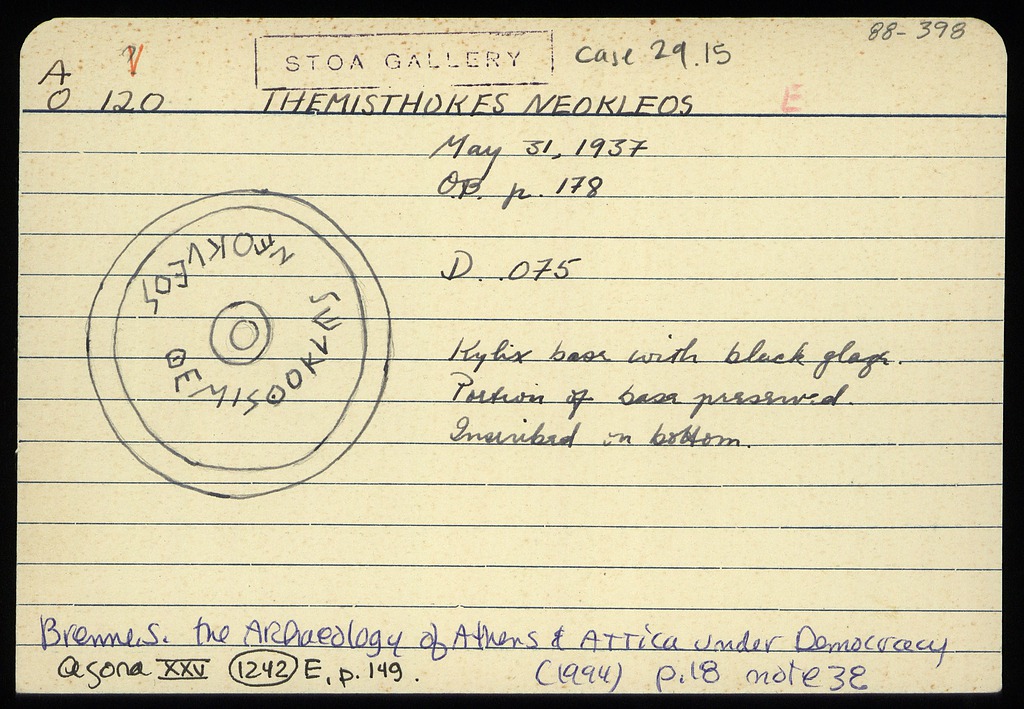 88-398
STOA GALLERY case 29.15
A V
O 120 THEMISTHOKES NEOKLEOS E
May 31, 1937
OB. p. 178
D. .075
ΝΕΟΚVΕΟS
ΘΕΜΙSΘΟΚLΕS
Kylix base with black glaze.
Portion of base preserved.
Inscribed on bottom.
Brenne, S. the ARChaeology of Athens & ATTica under Democracy
Agora XXV (1242) E, p. 149. (1994) p.18 note 32